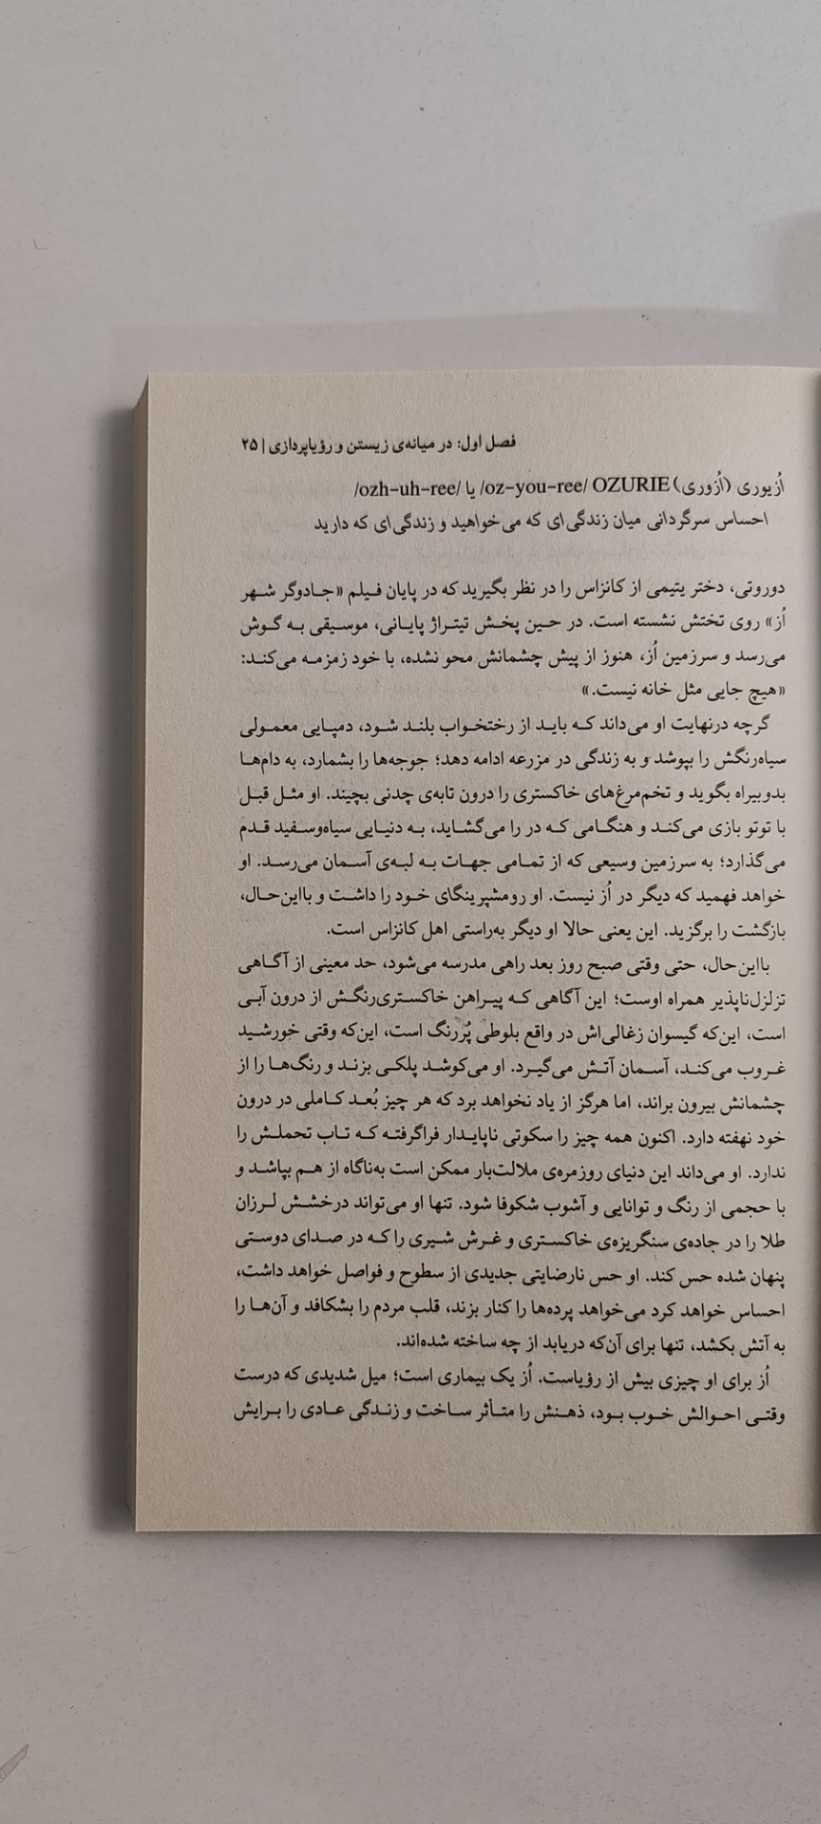 فصل اول: در میانه‌ی زیستن و رؤیاپردازی | ۲۵
اُزیوری (اُزوری) OZURIE /oz-you-ree/ یا /ozh-uh-ree/
احساس سرگردانی میان زندگی‌ای که می‌خواهید و زندگی‌ای که دارید
دوروتی، دختر یتیمی از کانزاس را در نظر بگیرید که در پایان فیلم «جادوگر شهر
اُز» روی تختش نشسته است. در حین پخش تیتراژ پایانی، موسیقی به گوش
می‌رسد و سرزمین اُز، هنوز از پیش چشمانش محو نشده، با خود زمزمه می‌کند:
«هیچ جایی مثل خانه نیست.»
گرچه درنهایت او می‌داند که باید از رختخواب بلند شود، دمپایی معمولی
سیاه‌رنگش را بپوشد و به زندگی در مزرعه ادامه دهد؛ جوجه‌ها را بشمارد، به دام‌ها
بدوبیراه بگوید و تخم‌مرغ‌های خاکستری را درون تابه‌ی چدنی بچیند. او مثل قبل
با توتو بازی می‌کند و هنگامی که در را می‌گشاید، به دنیایی سیاه‌وسفید قدم
می‌گذارد؛ به سرزمین وسیعی که از تمامی جهات به لبه‌ی آسمان می‌رسد. او
خواهد فهمید که دیگر در اُز نیست. او رومشپرینگای خود را داشت و بااین‌حال،
بازگشت را برگزید. این یعنی حالا او دیگر به‌راستی اهل کانزاس است.
بااین‌حال، حتی وقتی صبح روز بعد راهی مدرسه می‌شود، حد معینی از آگاهی
تزلزل‌ناپذیر همراه اوست؛ این آگاهی که پیراهن خاکستری‌رنگش از درون آبی
است، این‌که گیسوان زغالی‌اش در واقع بلوطی پُررنگ است، این‌که وقتی خورشید
غروب می‌کند، آسمان آتش می‌گیرد. او می‌کوشد پلکی بزند و رنگ‌ها را از
چشمانش بیرون براند، اما هرگز از یاد نخواهد برد که هر چیز بُعد کاملی در درون
خود نهفته دارد. اکنون همه چیز را سکوتی ناپایدار فراگرفته که تاب تحملش را
ندارد. او می‌داند این دنیای روزمره‌ی ملالت‌بار ممکن است به‌ناگاه از هم بپاشد و
با حجمی از رنگ و توانایی و آشوب شکوفا شود. تنها او می‌تواند درخشش لرزان
طلا را در جاده‌ی سنگریزه‌ی خاکستری و غرش شیری را که در صدای دوستی
پنهان شده حس کند. او حس نارضایتی جدیدی از سطوح و فواصل خواهد داشت،
احساس خواهد کرد می‌خواهد پرده‌ها را کنار بزند، قلب مردم را بشکافد و آن‌ها را
به آتش بکشد، تنها برای آن‌که دریابد از چه ساخته شده‌اند.
اُز برای او چیزی بیش از رؤیاست. اُز یک بیماری است؛ میل شدیدی که درست
وقتی احوالش خوب بود، ذهنش را متأثر ساخت و زندگی عادی را برایش